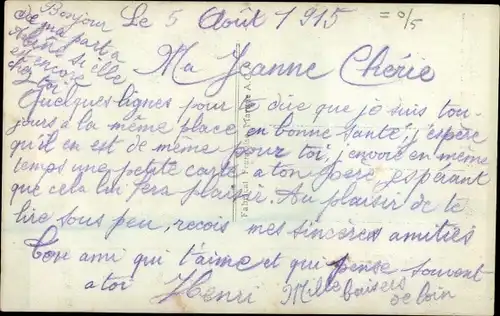 Bonjour
de ma part à
Aline si elle
est encore
chez toi
Le 5 Août 1915
Ma Jeanne Chérie
Quelques lignes pour te dire que je suis tou-
jours a la même place en bonne santé j'espère
qu'il en est de même pour toi, j'envoie en même
temps une petite carte a ton père, esperant
que cela lui fera plaisir. Au plaisir de te
lire sous peu, recois mes sincères amitiés
Ton ami qui t'aime et qui pense souvent
a toi Henri Mille baisers
de loin